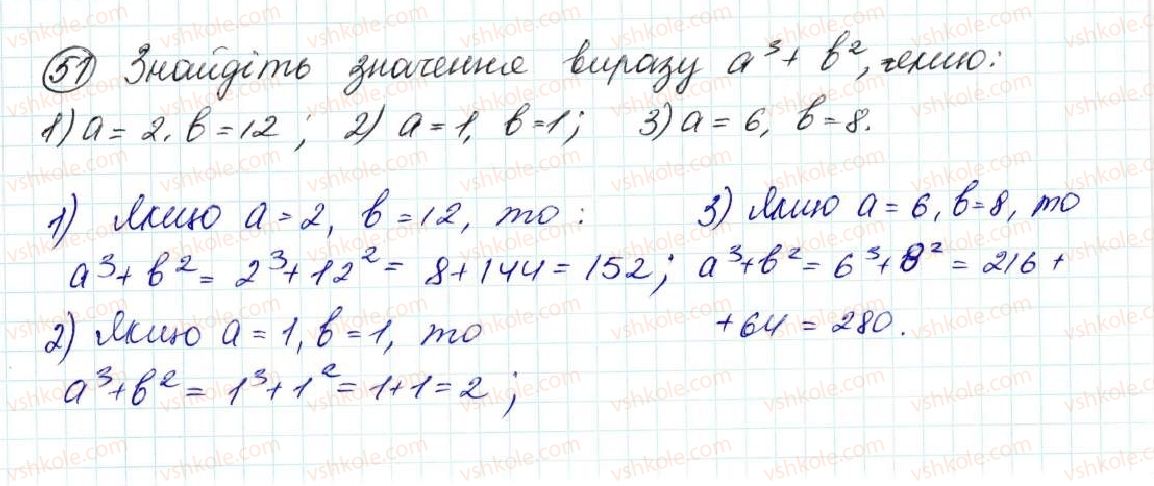 51 Знайдіть значення виразу a³ + b², якщо:
1) a = 2, b = 12; 2) a = 1, b = 1; 3) a = 6, b = 8.
1) Якщо a = 2, b = 12, то:
a³ + b² = 2³ + 12² = 8 + 144 = 152;
2) Якщо a = 1, b = 1, то
a³ + b² = 1³ + 1² = 1 + 1 = 2;
3) Якщо a = 6, b = 8, то
a³ + b² = 6³ + 8² = 216 +
+ 64 = 280.